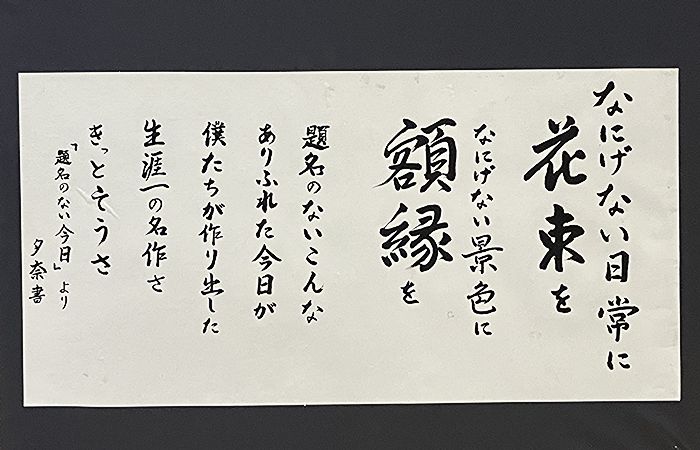 なにげない日常に
花束を
なにげない景色に
額縁を
題名のないこんな
ありふれた今日が
僕たちが作り出した
生涯一の名作さ
きっとそうさ
「題名のない今日」より
夕奈書